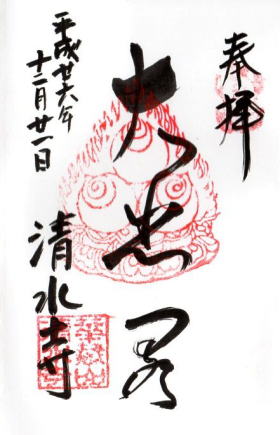 奉拝
大悲閣
平成廿六年
十二月廿一日
清水寺